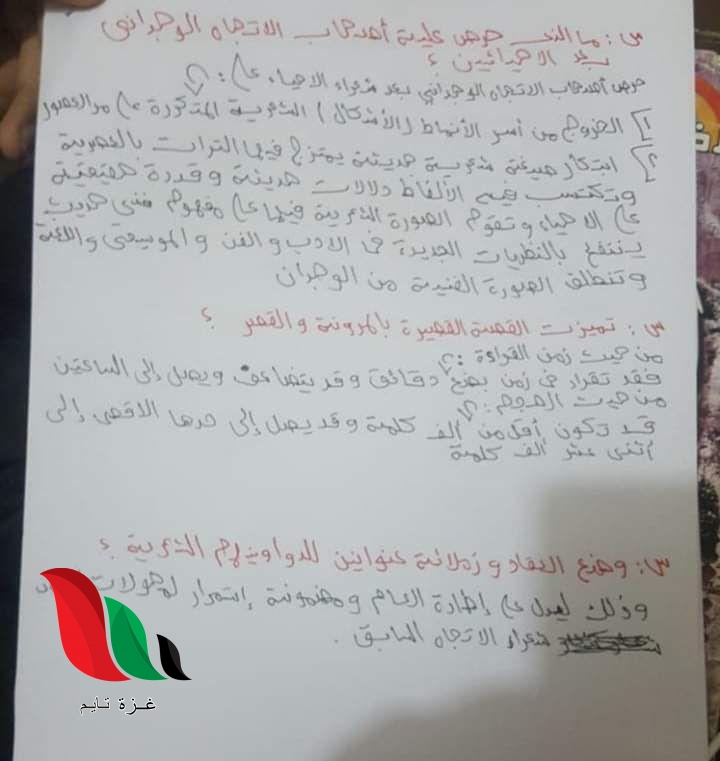 س: ما الذى حرص علية أصحاب الاتجاه الوجدانى
بعد الاحيائين ؟
حرص أصحاب الاتجاه الوجدانى بعد شعراء الاحياء على :
1] الخروج من أسر الأنماط (الأشكال) الشعرية المتكررة على مر العصور
2] ابتكار صيغة شعرية حديثة يمتزج فيها التراث بالعصرية
وتكتسب فيه الألفاظ دلالات حديثة وقدرة حقيقية
على الاحياء وتقوم الصورة الشعرية فيها على مفهوم فنى حديث
ينتفع بالنظريات الجديدة فى الادب والفن والموسيقى واللغة
وتنطلق الصورة الفنية من الوجدان
س: تميزت القصة القصيرة بالمرونة والقصر ؟
من حيث زمن القراءة :
فقد تقراء فى زمن بضع دقائق وقد يتضاعف ويصل إلى الساعتين
من حيث الحجم :
قد تكون أقل من ألف كلمة وقد يصل إلى حدها الاقصى إلى
أثنى عشر ألف كلمة
س: وضع العقاد وزملائة عنوانين للدواوينهم الشعرية ؟
وذلك ليدل على إطارة العام ومضمونة إستمرار لمحولات
شعراء الاتجاه السابق .
غزة تايم